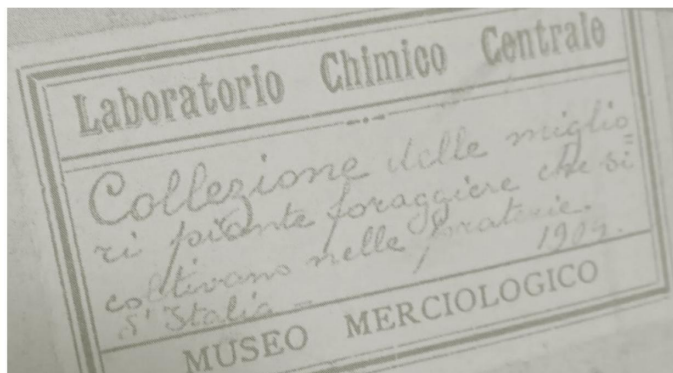 Laboratorio Chimico Centrale
Collezione delle miglio=
ri piante foraggiere che si
coltivano nelle praterie.
d'Italia - 1909.
MUSEO MERCIOLOGICO